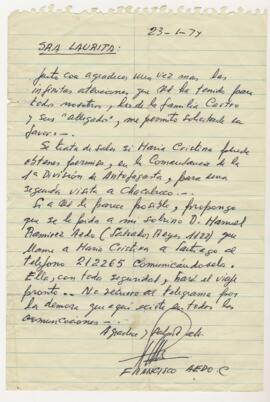 23-1-74
SRA LAURITA:
Junto con agradecer una vez mas las
infinitas atenciones que Ud ha tenido para
todos nosotros, los de la familia Castro
y sus "allegados", me permito solicitarle un
favor.-
Se trata de saber si Maria Cristina puede
obtener permiso, en la Comandancia de la
1ª División de Antofagasta, para una
segunda visita a Chacabuco.-
Si a Ud le parece posible, propongo
que se le pida a mi sobrino D. Hernal
Ramirez Aedo (Salvador Reyes 1122) que
llame a Maria Cristina a Santiago al
teléfono 212265 comunicándoselo.
Ella, con toda seguridad, hará el viaje
pronto.- No
la demora que aqui existe en todas las
comunicaciones.-
Agradece y saluda atte.
FRANCISCO AEDO C